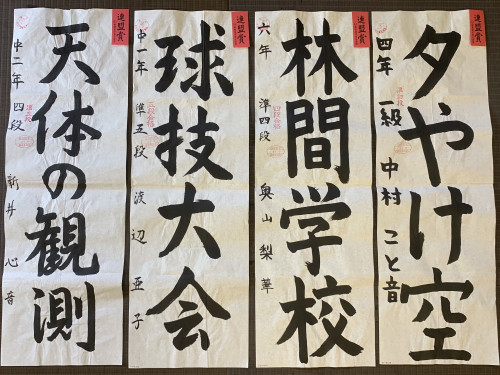 連盟賞
夕やけ空
四年 一級 中村 こと音
連盟賞
林間学校
六年 準四段 奥山 梨華
四段合格
連盟賞
球技大会
中一年 準五段 渡辺 亜子
五段合格
連盟賞
天体の観測
中二年 四段 新井 心音